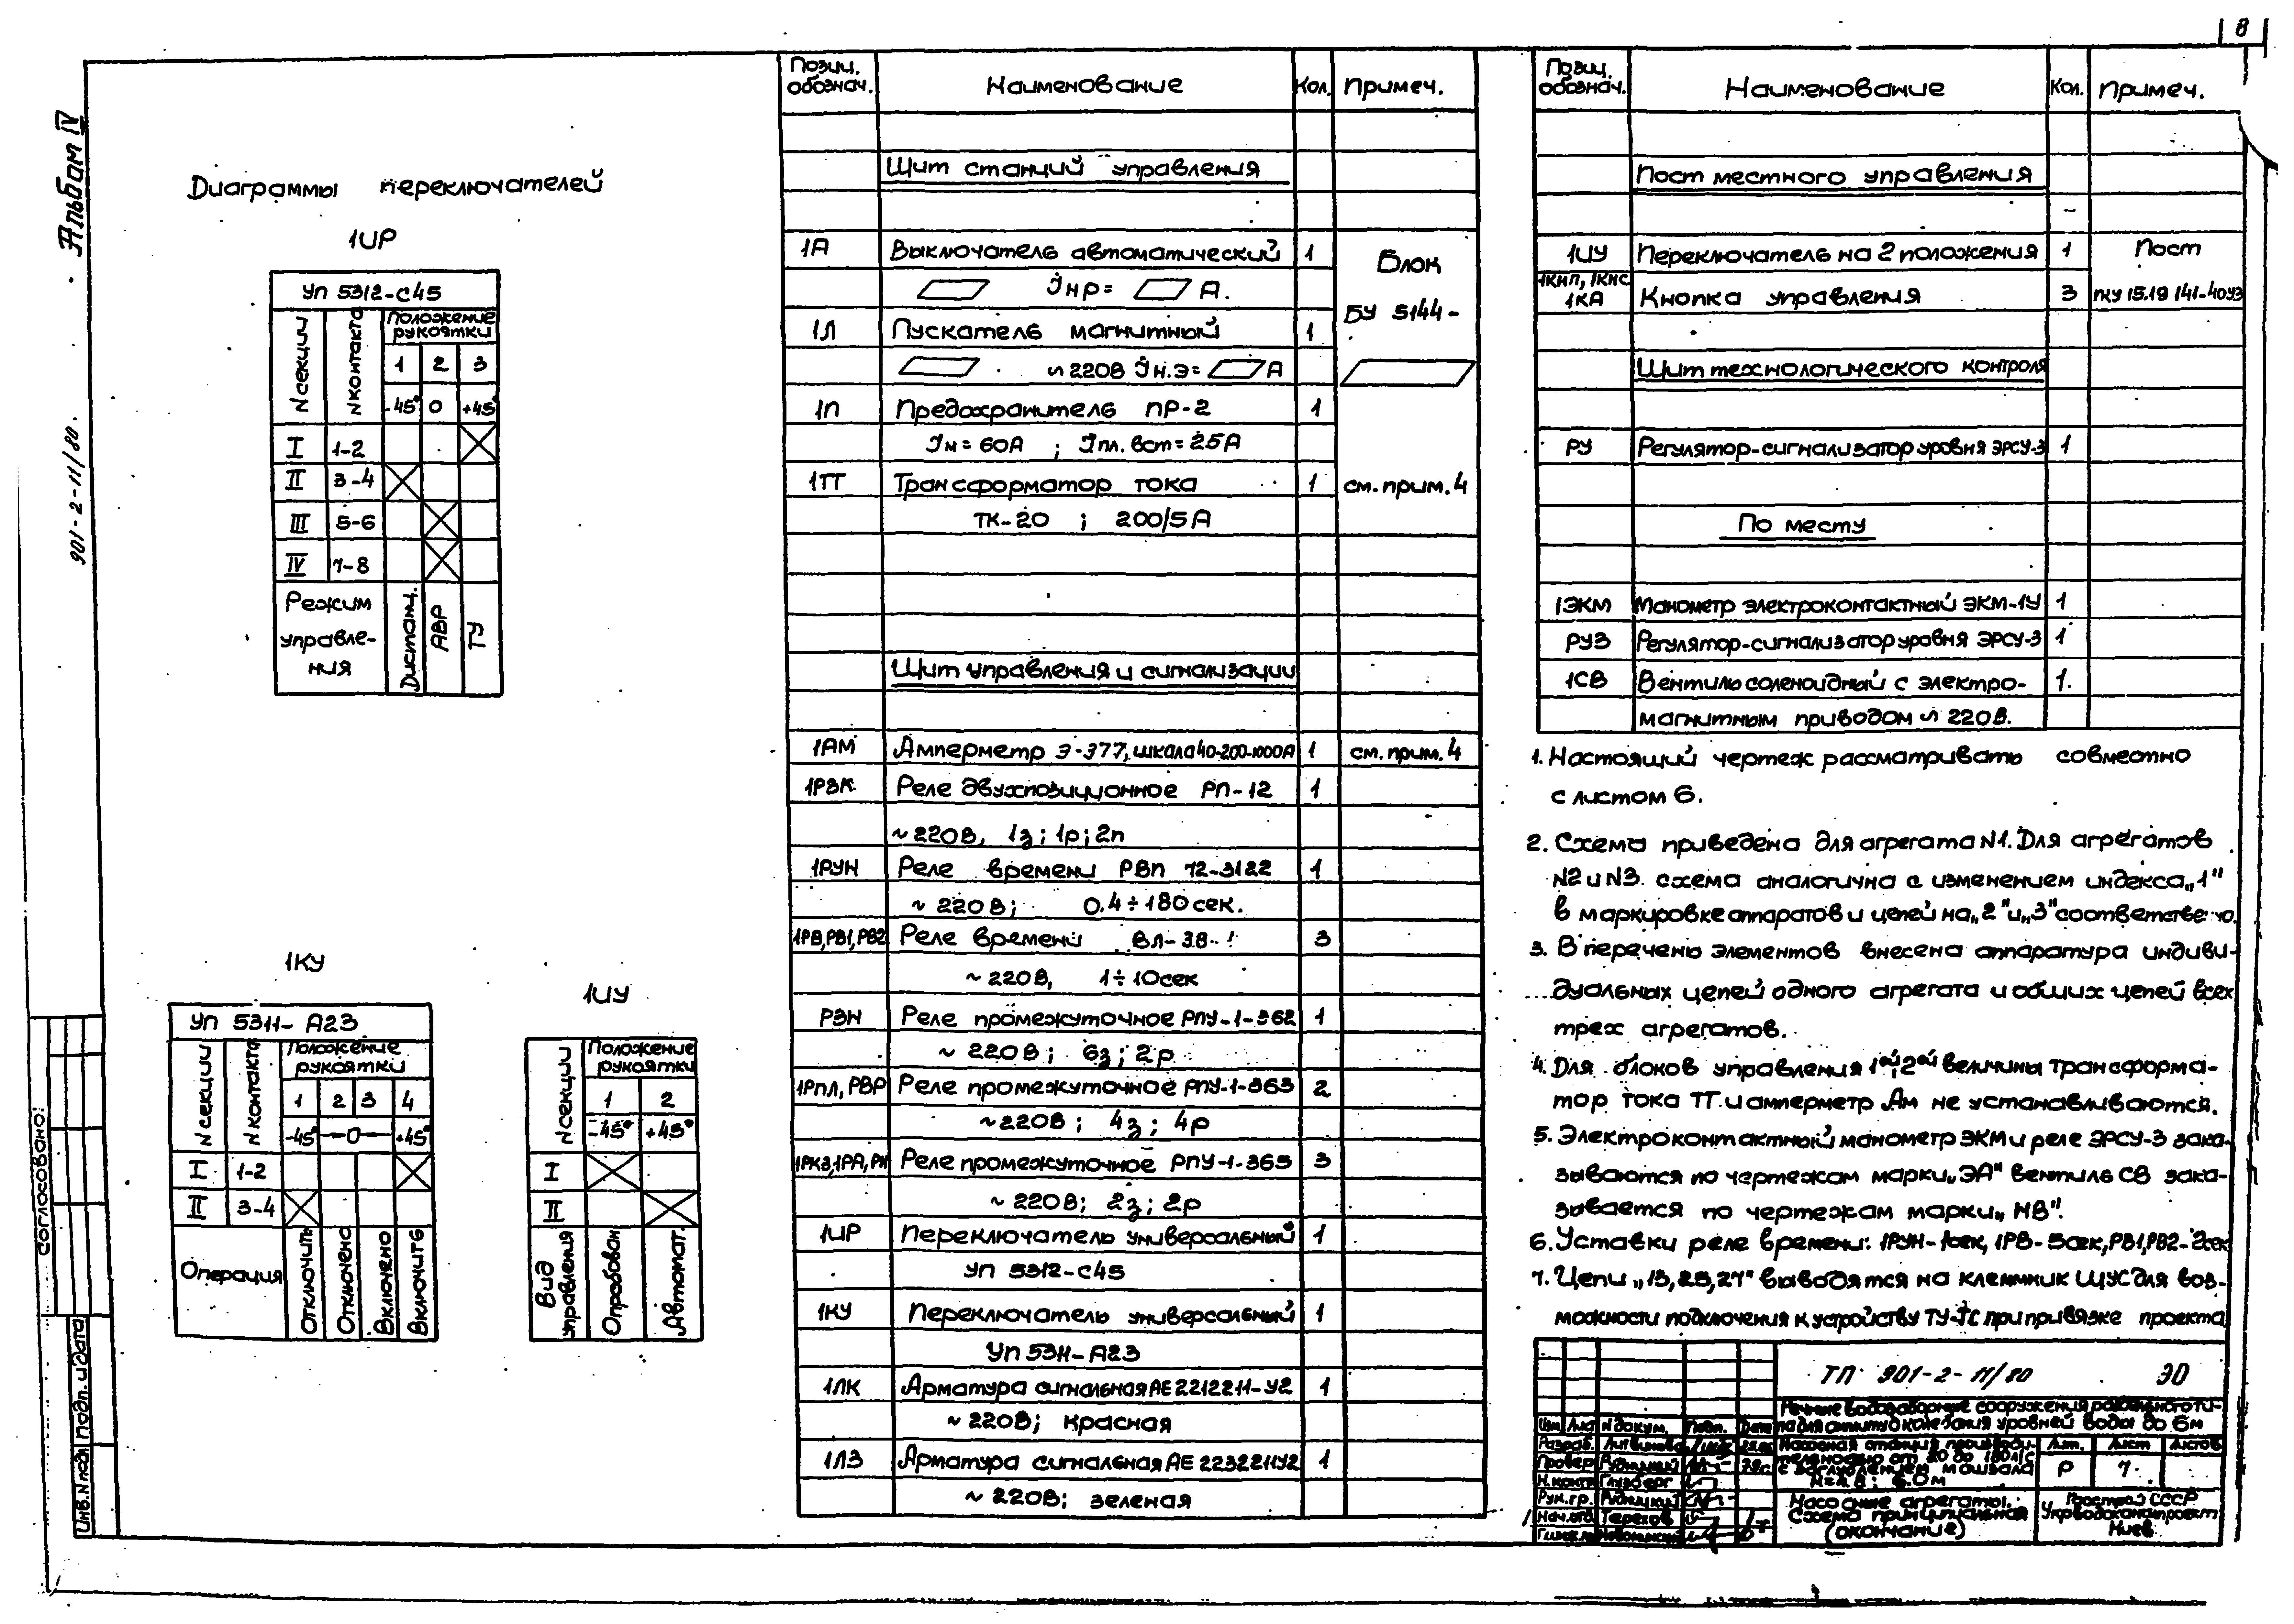 8
Альбом IV
901-2-11/80.
Диаграммы переключателей
1ИР
УП 5312-С45
N секции
N контакта
Положение
рукоятки
1 2 3
-45° 0 +45°
I 1-2
II 3-4
III 5-6
IV 7-8
Режим
управле-
ния
Дистанц.
АВР
ТУ
1КУ
УП 5311-А23
N секции
N контакта
Положение
рукоятки
1 2 3 4
-45° 0 +45°
I 1-2
II 3-4
Операция
Отключить
Отключено
Включено
Включить
1ИУ
N секции
Положение
рукоятки
1 2
-45° +45°
I
II
Вид
управления
Опробован
Автомат.
Согласовано:
Инв. N подл Подп. и дата
Позиц.
обознач. Наименование Кол. Примеч.
Щит станций управления
1А Выключатель автоматический 1 Блок
Iнр= А.
БУ 5144-
1Л Пускатель магнитный 1
~220В Iн.э= А
1П Предохранитель ПР-2 1
Iн=60А ; Iпл. вст=25А
1ТТ Трансформатор тока 1 см. прим. 4
ТК-20 ; 200/5А
Щит управления и сигнализации
1АМ Амперметр Э-377, шкала 40-200-1000А 1 см. прим. 4
1РЗК Реле двухпозиционное РП-12 1
~220В, 1з; 1р; 2п
1РУН Реле времени РВП 72-3122 1
~220В; 0.4÷180сек.
1РВ, РВ1, РВ2 Реле времени ВЛ-38 3
~220В, 1÷10сек
РЗН Реле промежуточное РПУ-1-362 1
~220В; 6з; 2р
1РПЛ, РВР Реле промежуточное РПУ-1-363 2
~220В; 4з; 4р
1РКЗ, 1РА, РН Реле промежуточное РПУ-1-365 3
~220В; 2з; 2р
1ИР Переключатель универсальный 1
УП 5312-С45
1КУ Переключатель универсальный 1
УП 5311-А23
1ЛК Арматура сигнальная АЕ 2212211-У2 1
~220В; красная
1ЛЗ Арматура сигнальная АЕ 223221192 1
~220В; зеленая
Позиц.
обознач. Наименование Кол. Примеч.
Пост местного управления
1ИУ Переключатель на 2 положения 1 Пост
1КНП, 1КНС
1КА Кнопка управления 3 ПКУ 15.19 141-40У3
Щит технологического контроля
РУ Регулятор-сигнализатор уровня ЭРСУ-3 1
По месту
1ЭКМ Манометр электроконтактный ЭКМ-1У 1
РУЗ Регулятор-сигнализатор уровня ЭРСУ-3 1
1СВ Вентиль соленоидный с электро- 1.
магнитным приводом ~220В.
1. Настоящий чертеж рассматривать совместно
с листом 6.
2. Схема приведена для агрегата N1. Для агрегатов
N2 и N3 схема аналогична с изменением индекса „1"
в маркировке аппаратов и цепей на „2" и „3" соответстве но.
3. В перечень элементов внесена аппаратура индиви-
дуальных цепей одного агрегата и общих цепей всех
трех агрегатов.
4. Для блоков управления 1ой, 2ой величины трансформа-
тор тока ТТ и амперметр Ам не устанавливаются.
5. Электроконтактный манометр ЭКМ и реле ЭРСУ-3 зака-
зываются по чертежам марки „ЭА" вентиль СВ зака-
зывается по чертежам марки „НВ".
6. Уставки реле времени: 1РУН-1сек, 1РВ-5сек, РВ1, РВ2-2сек
7. Цепи „13, 25, 27" выводятся на клеммник ЩУС для воз-
можности подключения к устройству ТУ-ТС при привязке проекта
ТП 901-2-11/80 ЭО
Речные водозаборные сооружения раздельного ти-
па для амплитуд колебания уровней воды до 6м
Изм Лист N докум. Подп. Дата
Разраб. Литвинова
Провер Рудницкий
Н. контр Глузберг
Рук. гр. Рудницкий
Нач. отд Терехов
Насосная станция производи-
тельностью от 20 до
с заглублением машзала
6.0м
Лит. Лист Листов
Р 7
Насосные агрегаты.
Схема принципиальная
(окончание)
Госстрой СССР
Укрводоканалпроект
Киев